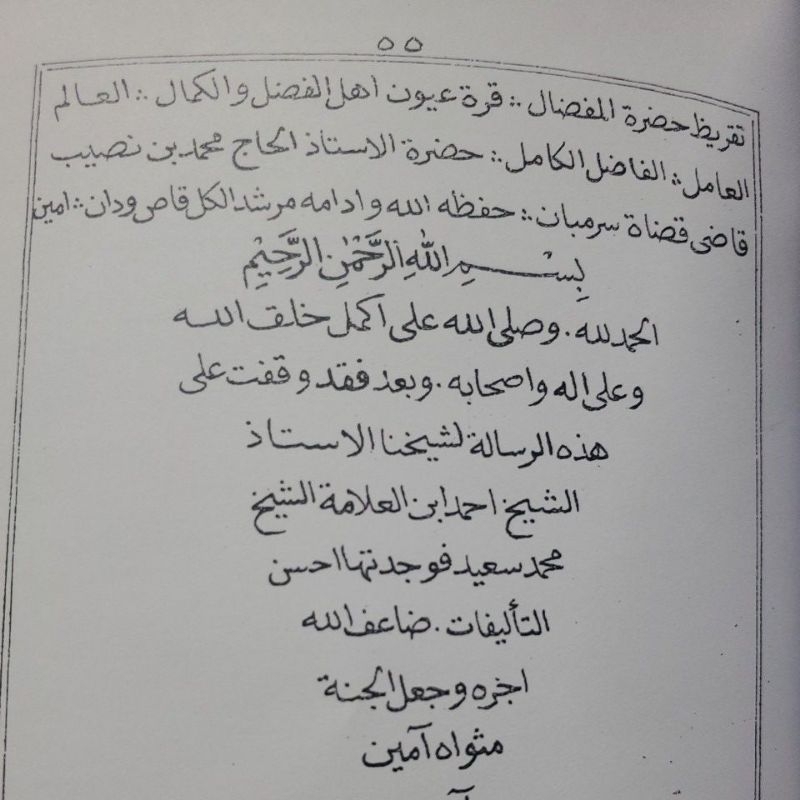 ٥٥
تقريظ حضرة المفضال :: قرة عيون اهل الفضل والكمال :: العالم
العامل :: الفاضل الكامل :: حضرة الاستاذ الحاج محمد بن نصيب
قاضى قضاة سرمبان :: حفظه الله وادامه مرشد الكل قاص ودان :: امين
بِسْمِ اللهِ الرَّحْمٰنِ الرَّحِيْمِ
الحمد لله . وصلى الله على اكمل خلق الله
وعلى اله واصحابه . وبعد فقد وقفت على
هذه الرسالة لشيخنا الاستاذ
الشيخ احمد ابن العلامة الشيخ
محمد سعيد فوجدتها احسن
التأليفات . ضاعف الله
اجره وجعل الجنة
مثواه آمين